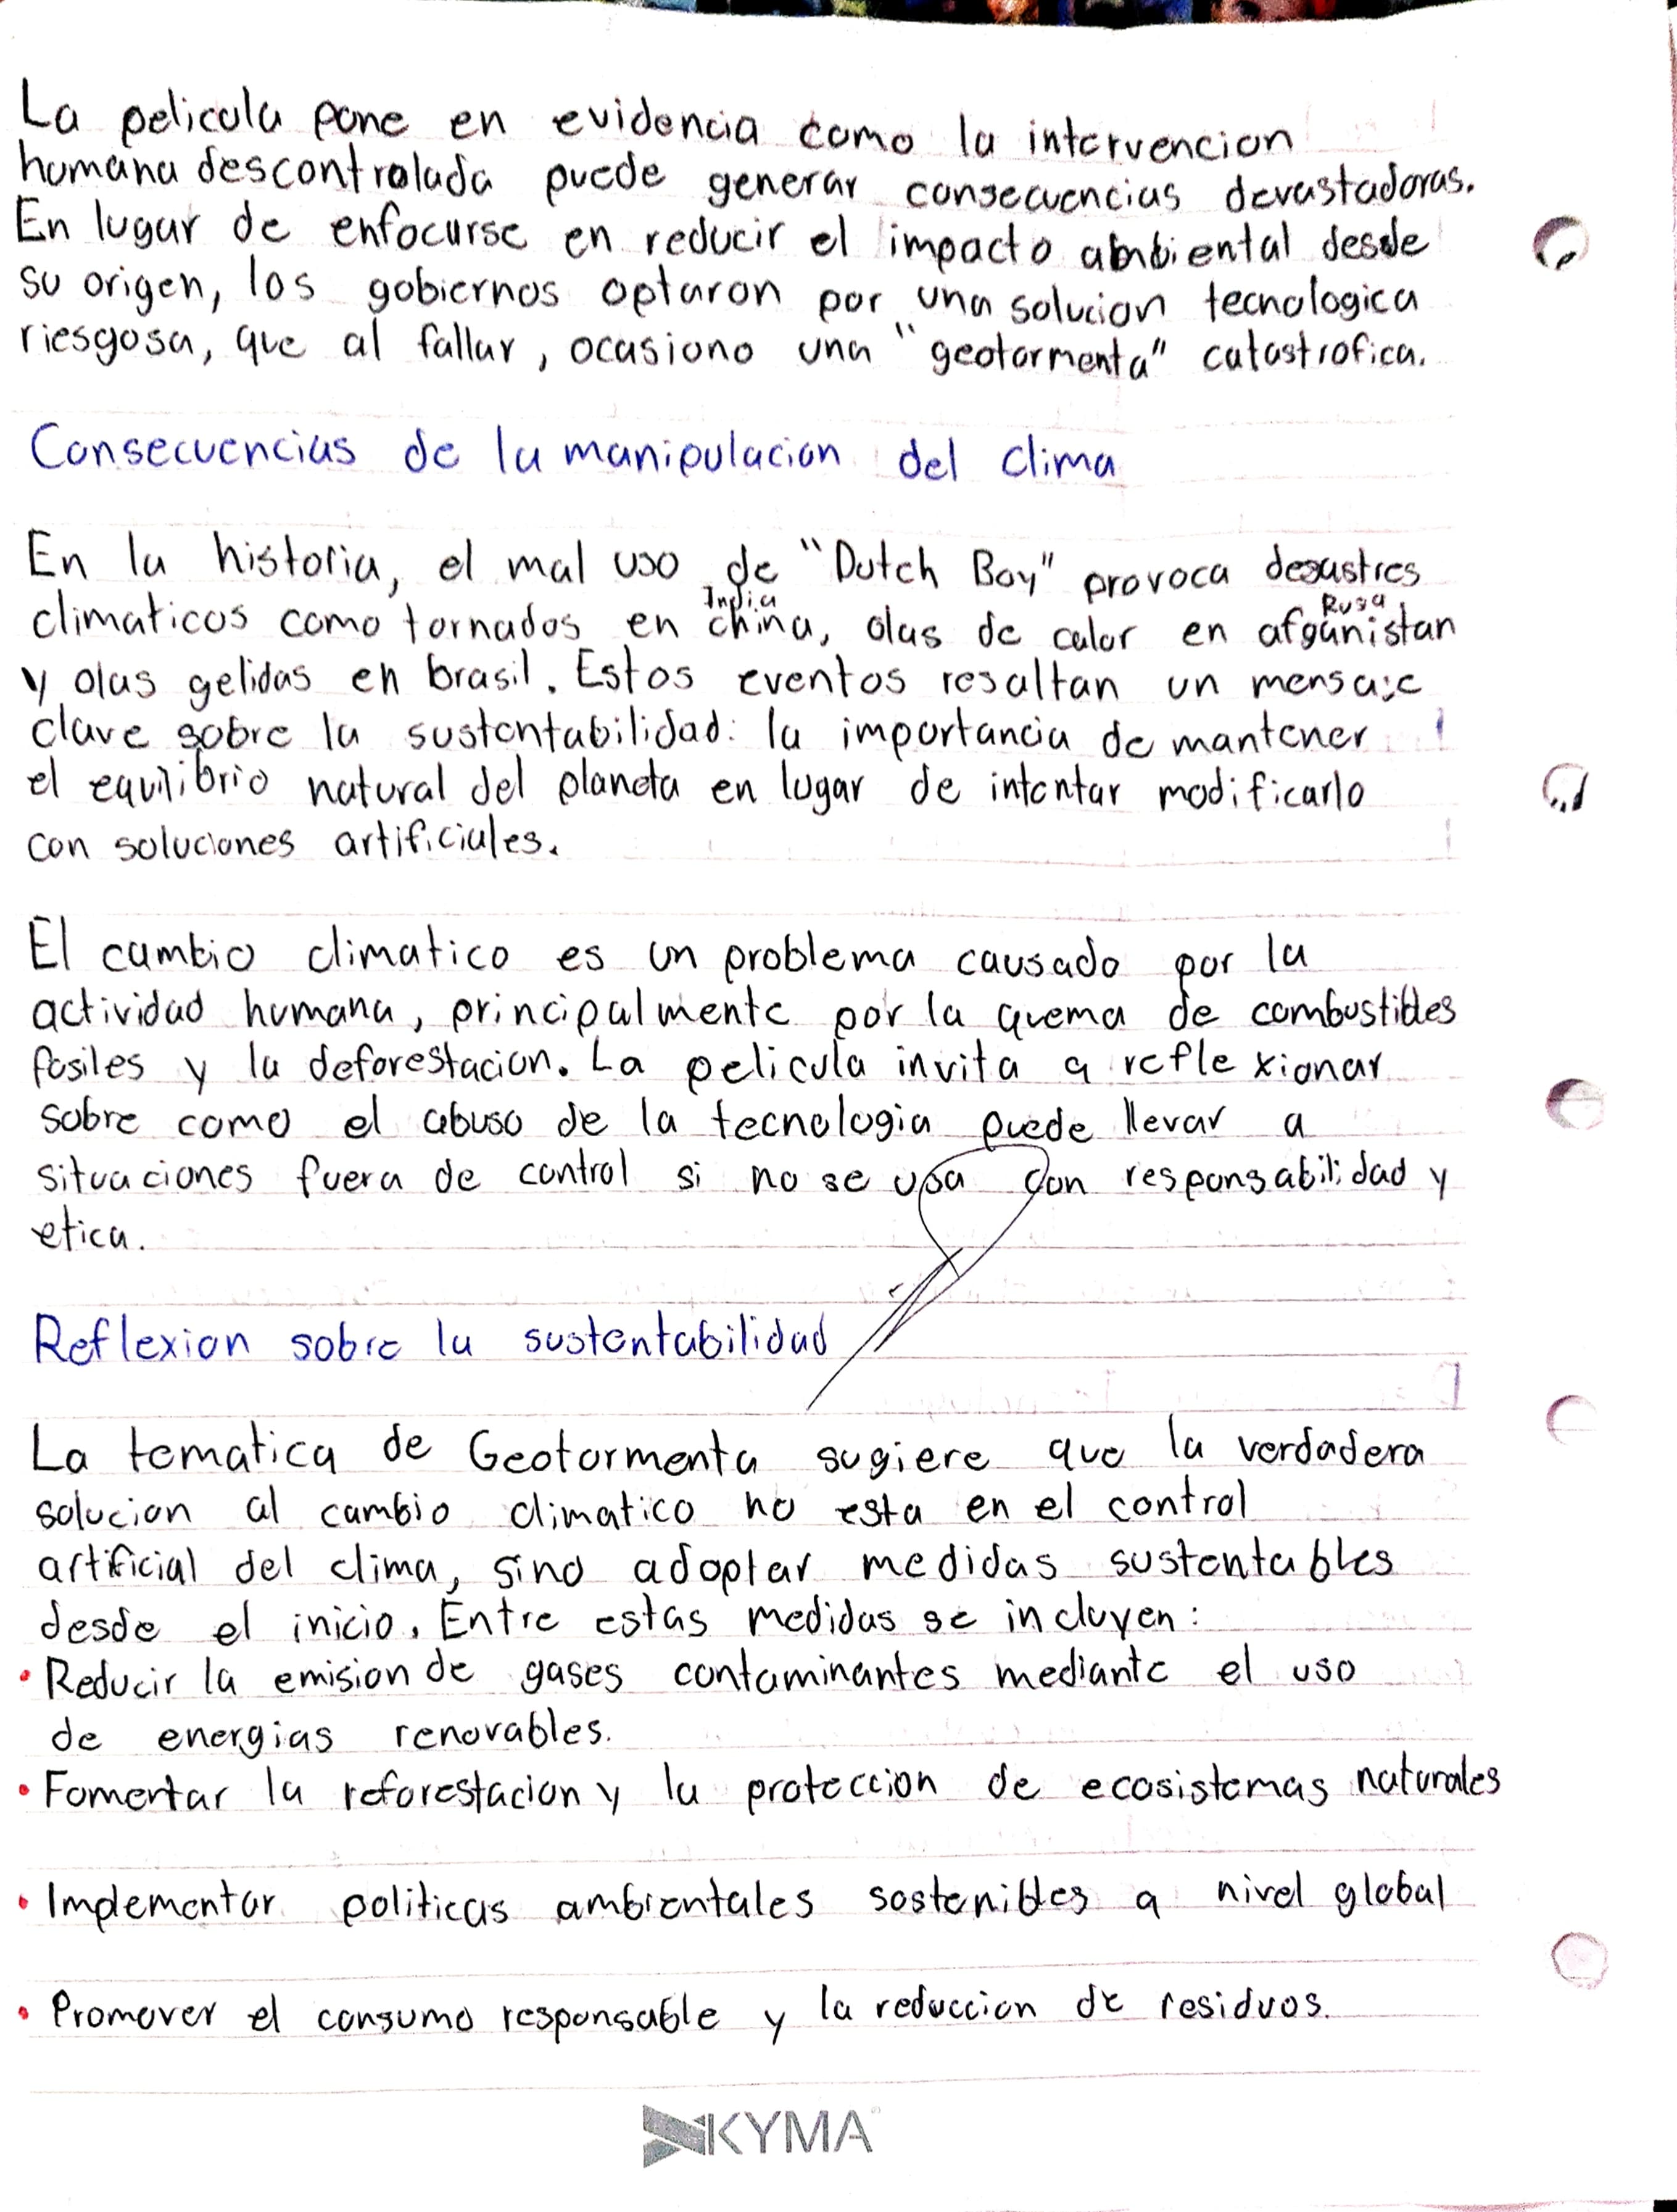 La pelicula pone en evidencia como la intervencion
humana descontrolada puede generar consecuencias devastadoras.
En lugar de enfocarse en reducir el impacto ambiental desde
su origen, los gobiernos optaron por una solucion tecnologica
riesgosa, que al fallar, ocasiono una "geotormenta" catastrofica.
Consecuencias de la manipulacion del clima
En la historia, el mal uso de "Dutch Boy" provoca desastres
India Rusa
climaticos como tornados en china, olas de calor en afganistan
y olas gelidas en brasil. Estos eventos resaltan un mensaje
clave sobre la sustentabilidad: la importancia de mantener
el equilibrio natural del planeta en lugar de intentar modificarlo
con soluciones artificiales.
El cambio climatico es un problema causado por la
actividad humana, principalmente por la quema de combustibles
fosiles y la deforestacion. La pelicula invita a reflexionar
sobre como el abuso de la tecnologia puede llevar a
situaciones fuera de control si no se usa con responsabilidad y
etica.
Reflexion sobre la sustentabilidad
La tematica de Geotormenta sugiere que la verdadera
solucion al cambio climatico no esta en el control
artificial del clima, sino adoptar medidas sustentables
desde el inicio. Entre estas medidas se incluyen:
• Reducir la emision de gases contaminantes mediante el uso
de energias renovables.
• Fomentar la reforestacion y la proteccion de ecosistemas naturales
• Implementar politicas ambientales sostenibles a nivel global
• Promover el consumo responsable y la reduccion de residuos.
KYMA